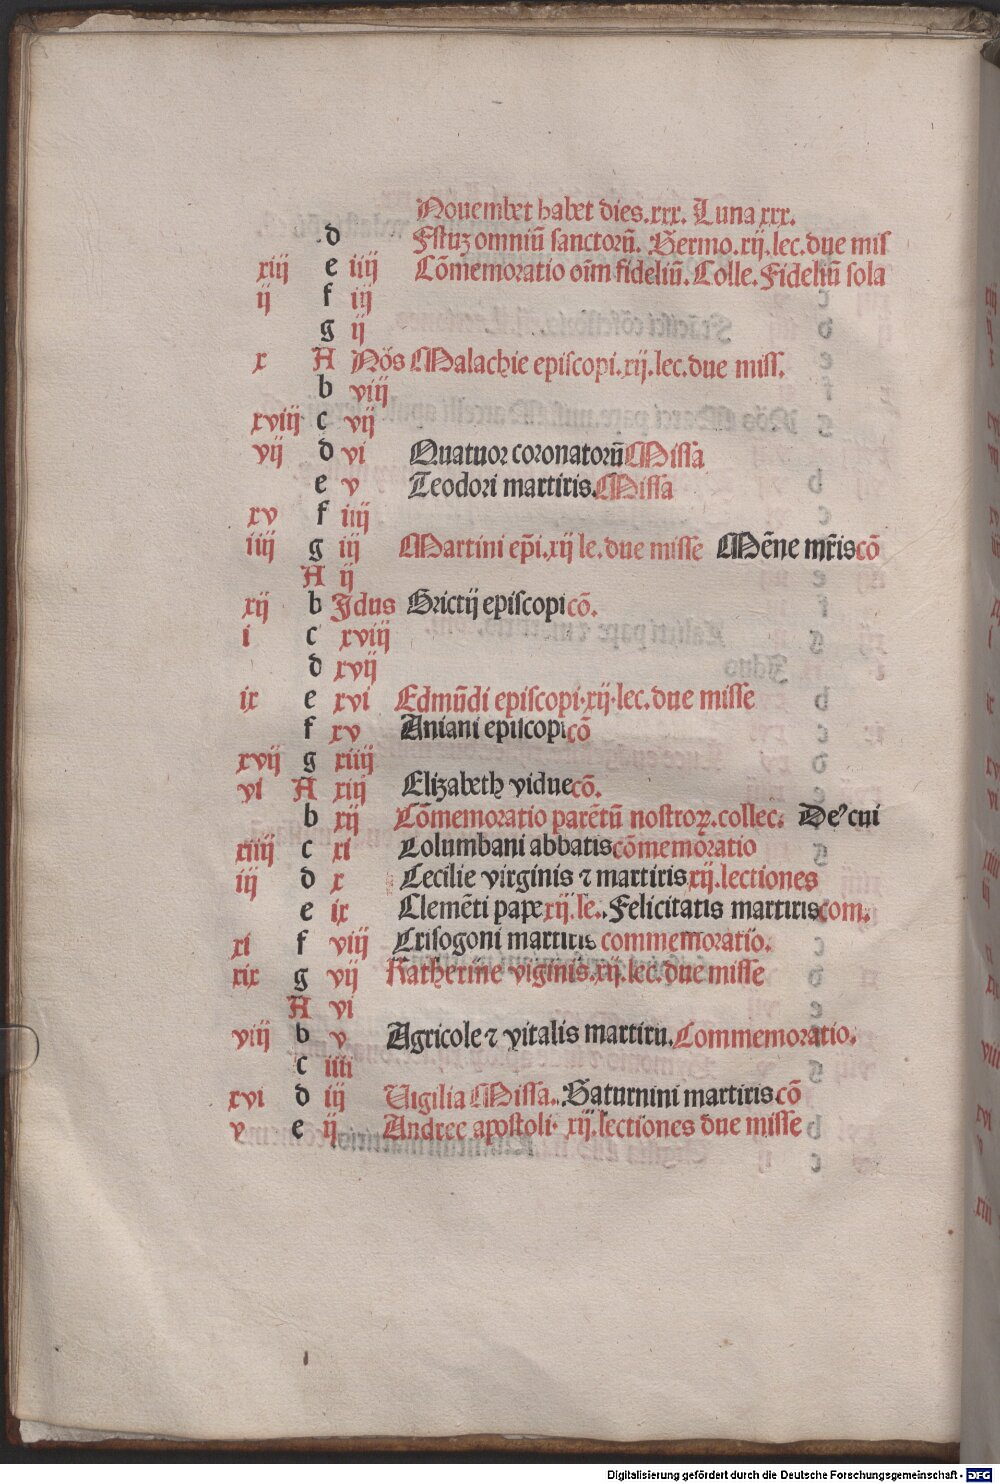 Nouember habet dies.xxx. Luna xxx.
d Festuz omniū sanctorū. Sermo.xij.lec.due mis
xiij e iiij Cōmemoratio oīm fideliū. Colle. Fideliū sola
ij f iij
g ij
x A Nōs Malachie episcopi.xij.lec.due miss.
b viij
xviij c vij
vij d vi Quatuor coronatorū Missa
e v Teodori martiris. Missa
xv f iiij
iiij g iij Martini ep̄i.xij le.due misse Mēne mr̄is cō
A ij
xij b Idus Brictij episcopi cō.
i c xviij
d xvij
ix e xvi Edmūdi episcopi.xij.lec.due misse
f xv Aniani episcopi cō
xvij g xiiij
vi A xiij Elizabeth vidue cō.
b xij Cōmemoratio parētū nostroꝝ.collec. De⁹ cui
xiiij c xi Columbani abbatis cōmemoratio
iij d x Cecilie virginis ⁊ martiris xij.lectiones
e ix Clemēti pape xij.le.. Felicitatis martiris com.
xi f viij Crisogoni martiris commemoratio.
xix g vij Katherine viginis.xij.lec.due misse
A vi
viij b v Agricole ⁊ vitalis martiru. Commemoratio.
c iiii
xvi d iij Vigilia Missa.. Saturnini martiris cō
v e ij Andree apostoli. xij.lectiones due misse
Digitalisierung gefördert durch die Deutsche Forschungsgemeinschaft - DFG